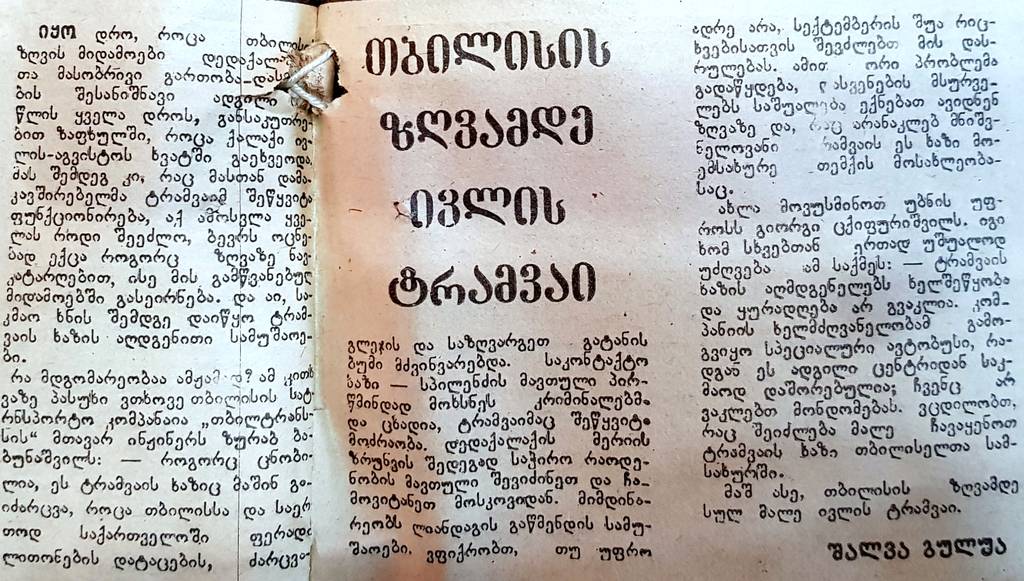 იყო დრო, როცა თბილისი
ზღვის მიდამოები დედაქალა
თა მასობრივი გართობა-დას
ბის შესანიშნავი ადგილი
წლის ყველა დროს, განსაკუთრე-
ბით ზაფხულში, როცა ქალაქი ივ-
ლის-აგვისტოს ხვატში გაეხვეოდა.
მას შემდეგ კი, რაც მასთან დამა-
კავშირებელმა ტრამვაიმ შეწყვიტა
ფუნქციონირება, აქ ამოსვლა ყვე-
ლას როდი შეეძლო, ბევრს ოცნე-
ბად ექცა როგორც ზღვაზე ნავ-
კატარღებით, ისე მის გამწვანებულ
მიდამოებში გასეირნება. და აი, სა-
კმაო ხნის შემდეგ დაიწყო ტრამ-
ვაის ხაზის აღდგენითი სამუშაოე-
ბი.
რა მდგომარეობაა ამჟამად? ამ კითხ
ვაზე პასუხი ვთხოვე თბილისის სატ
რნსპორტო კომპანია „თბილტრანს-
სის“ მთავარ ინჟინერს ზურაბ ბა-
ბუნაშვილს: — როგორც ცნობი-
ლია, ეს ტრამვაის ხაზიც მაშინ გა-
იძარცვა, როცა თბილისსა და საერ
თოდ საქართველოში ფერადი
ლითონების დატაცების, ძარცვა-
თბილისის
ზღვამდე
ივლის
ტრამვაი
გლეჯის და საზღვარგეთ გატანის
ბუმი მძვინვარებდა. საკონტაქტო
ხაზი — სპილენძის მავთული პირ-
წმინდად მოხსნეს კრიმინალებმა
და ცხადია, ტრამვაიმაც შეწყვიტა
მოძრაობა. დედაქალაქის მერიის
ზრუნვის შედეგად საჭირო რაოდე-
ნობის მავთული შევიძინეთ და ჩა-
მოვიტანეთ მოსკოვიდან. მიმდინა-
რეობს ლიანდაგის გაწმენდის სამუ-
შაოები. ვფიქრობთ, თუ უფრო
ადრე არა, სექტემბერის შუა რიც-
ხვებისათვის შევძლებთ მის დას-
რულებას. ამით ორი პრობლემა
გადაწყდება, დასვენების მსურვე-
ლებს საშუალება ექნებათ ავიდნენ
ზღვაზე და, რაც არანაკლებ მნიშვ-
ნელოვანი ტრამვაის ეს ხაზი მო-
ემსახურე თემქის მოსახლეობა-
საც.
ახლა მოვუსმინოთ უბნის უფ-
როსს გიორგი ცქიფურიშვილს. იგი
ხომ სხვებთან ერთად უშუალოდ
უძღვება ამ საქმეს: — ტრამვაის
ხაზის აღმდგენელებს ხელშეწყობა
და ყურადღება არ გვაკლია. კომ-
პანიის ხელმძღვანელობამ გამო-
გვიყო სპეციალური ავტობუსი, რა-
დგან ეს ადგილი ცენტრიდან საკ-
მაოდ დაშორებულია; ჩვენც არ
ვაკლებთ მონდომებას. ვცდილობთ,
რაც შეიძლება მალე ჩავაყენოთ
ტრამვაის ხაზი თბილისელთა სამ-
სახურში.
მაშ ასე, თბილისის ზღვამდე
სულ მალე ივლის ტრამვაი.
შალვა გულუა